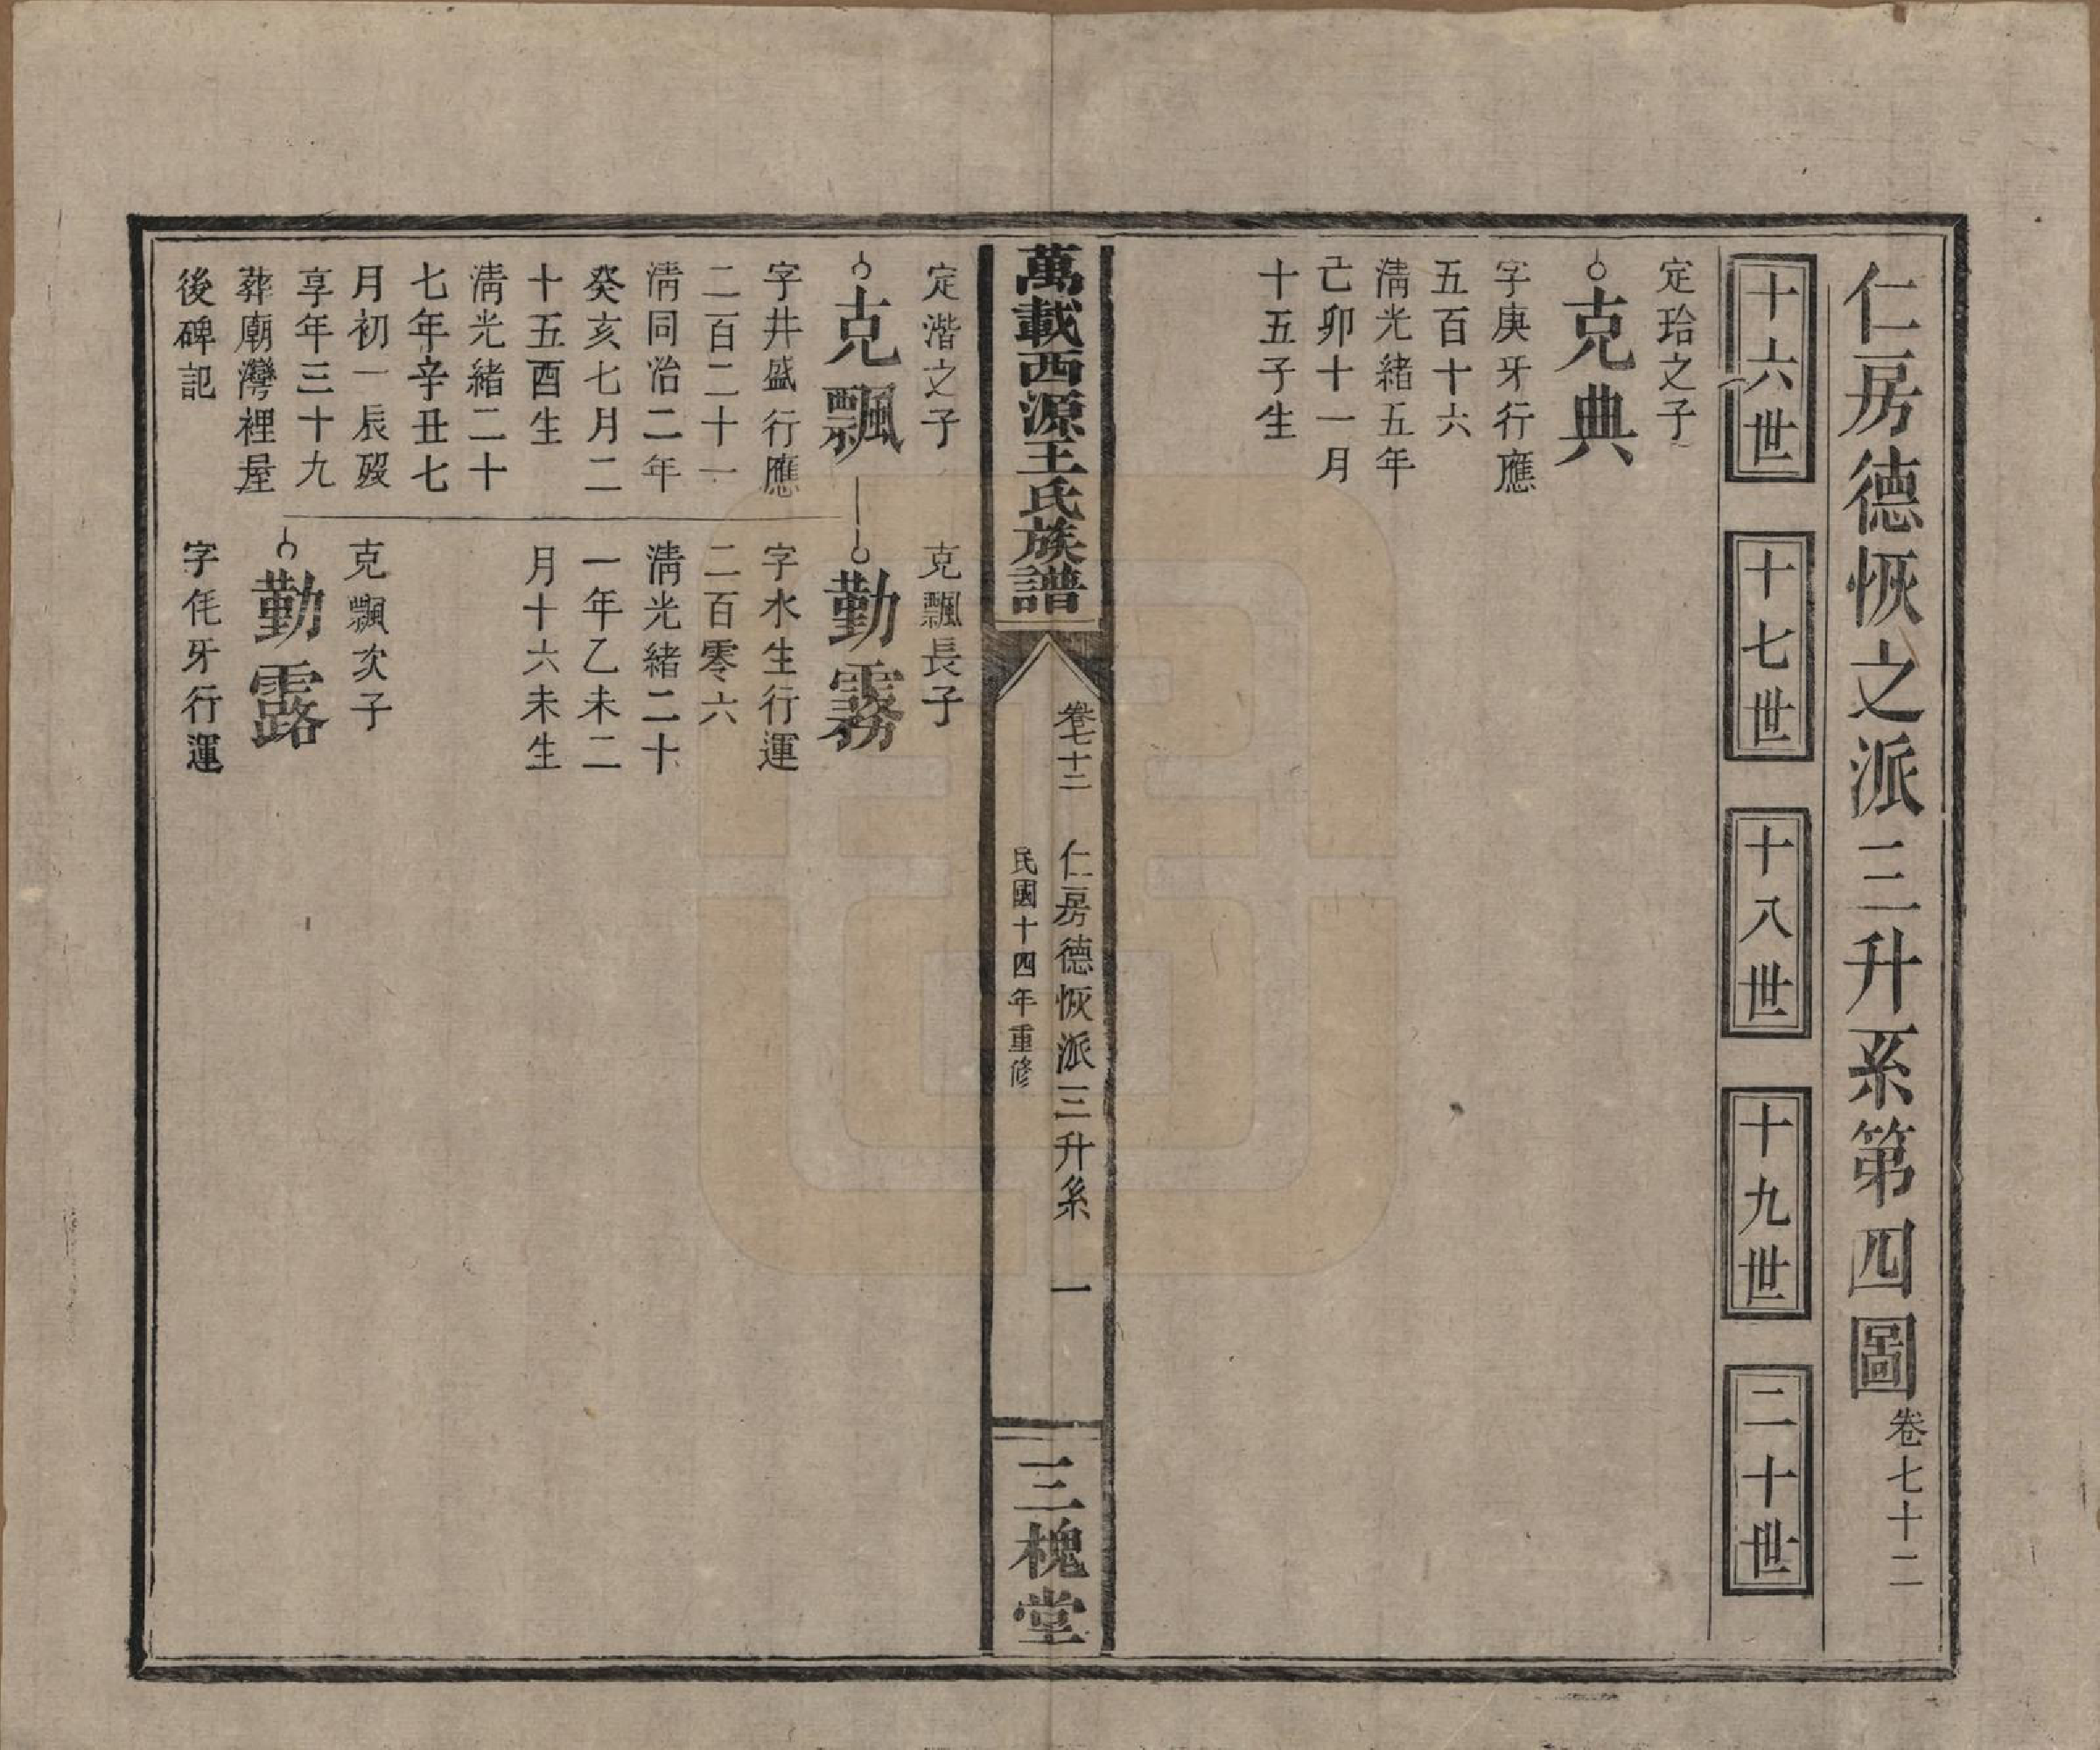 仁房德恢之派三升系第四圖卷七十二
十六世
十七世
十八世
十九世
二十世
定珆之子
克典
字庚牙行應
五百十六
清光緒五年
己卯十一月
十五子生
萬載西源王氏族譜
卷七十二
仁房德恢派三升系
一
民國十四年重修
三槐堂
定湝之子
克飄
字井盛行應
二百二十一
清同治二年
癸亥七月二
十五酉生
清光緒二十
七年辛丑七
月初一辰歿
享年三十九
葬廟灣裡屋
後碑記
克飄長子
勤霧
字水生行運
二百零六
清光緒二十
一年乙未二
月十六未生
克飄次子
勤露
字㲌牙行運